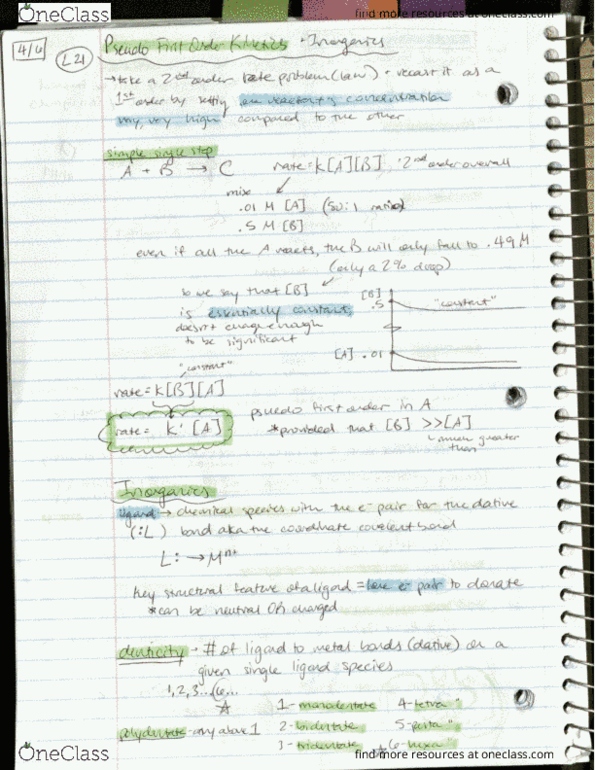 OneClass
find more resources at oneclass.com
4/6
L21
Pseudo First Order Kinetics · Inorganics
→ take a 2nd order rate problem (law) + recast it as a
1st order by setting one reactant's concentration
very, very high compared to the other
simple single step
A + B → C rate = k[A][B] 2nd order overall
mix
.01 M [A] (50:1 ratio)
.5 M [B]
even if all the A reacts, the B will only fall to .49 M
(only a 2% drop)
so we say that [B]
is essentially constant,
doesn't change enough
to be significant
[B]
.5
"constant"
[A] .01
"constant"
rate = k[B][A]
rate = k' [A]
psuedo first order in A
*provided that [B] >> [A]
much greater
than
Inorganics
ligand → chemical species with the e- pair for the dative
(:L) bond aka the coordinate covalent bond
L: → Mn+
key structural feature of a ligand = lone e- pair to donate
*can be neutral OR charged
denticity - # of ligand to metal bonds (dative) on a
given single ligand species
1, 2, 3...6...
1 - monodentate 4 - tetra "
polydentate - any above 1 2 - bidentate 5 - penta "
3 - tridentate 6 - hexa "
OneClass
find more resources at oneclass.com